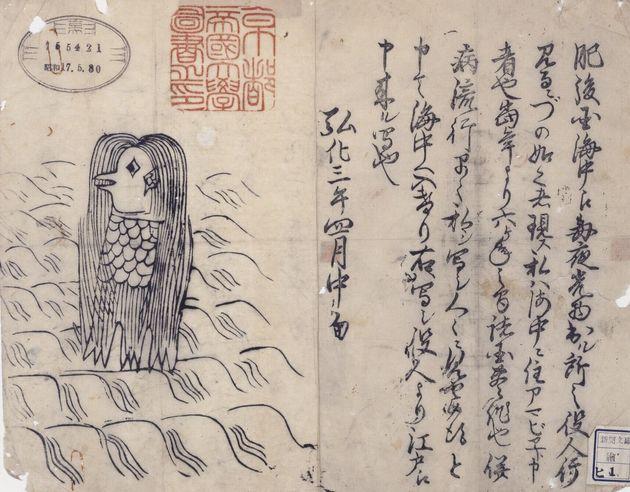 肥後国海中え毎夜光物出ル所之役人行
見るニづの如く者現ス私ハ海中ニ住アマビヱト申
者也當年より六ヶ年之間諸国豊作也併
病流行早々私シ写シ人々ニ見せ候得と
申て海中へ入けり右写シ役人より江戸え
申来ル写也
弘化三年四月中旬
京都
帝國大學
圖書之印
165421
昭和17.5.30
繪
ヒ 1